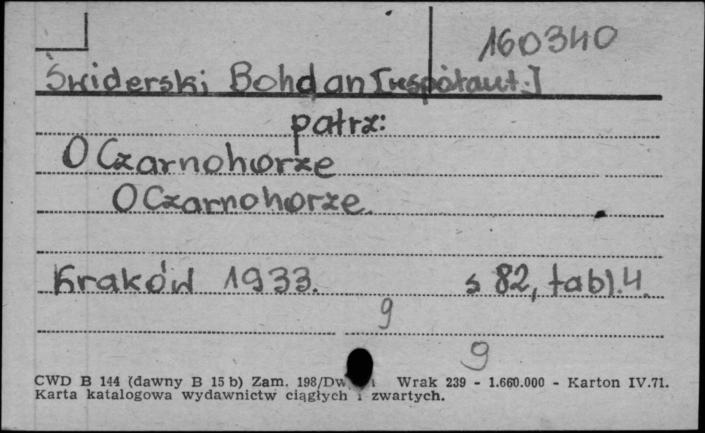 160340
Świderski Bohdan [współaut.]
patrz:
O Czarnohorze
O Czarnohorze.
Kraków 1933. s 82, tabl. 4.
9
9
CWD B 144 (dawny B 15 b) Zam. 198/Dw Wrak 239 - 1.660.000 - Karton IV.71.
Karta katalogowa wydawnictw ciągłych i zwartych.